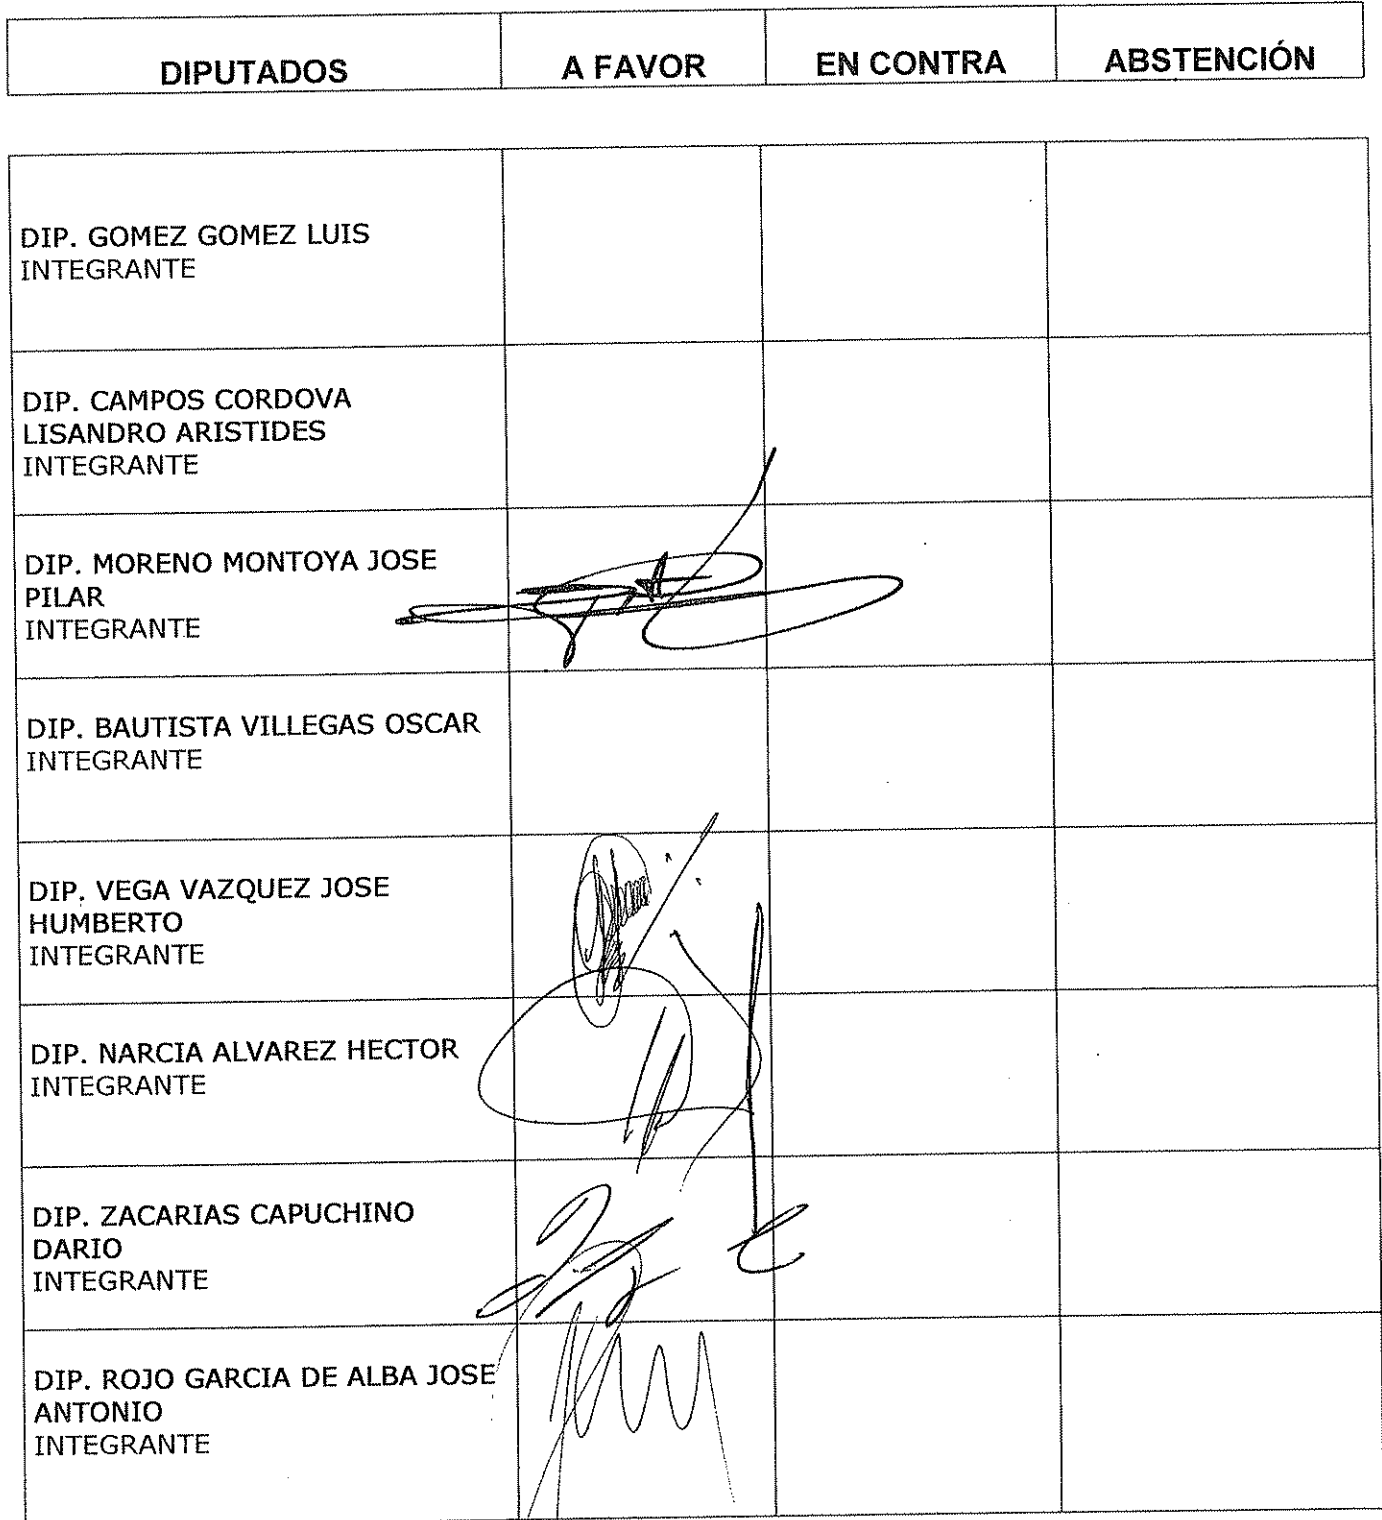 DIPUTADOS A FAVOR EN CONTRA ABSTENCIÓN
DIP. GOMEZ GOMEZ LUIS
INTEGRANTE
DIP. CAMPOS CORDOVA
LISANDRO ARISTIDES
INTEGRANTE
DIP. MORENO MONTOYA JOSE
PILAR
INTEGRANTE
DIP. BAUTISTA VILLEGAS OSCAR
INTEGRANTE
DIP. VEGA VAZQUEZ JOSE
HUMBERTO
INTEGRANTE
DIP. NARCIA ALVAREZ HECTOR
INTEGRANTE
DIP. ZACARIAS CAPUCHINO
DARIO
INTEGRANTE
DIP. ROJO GARCIA DE ALBA JOSE
ANTONIO
INTEGRANTE